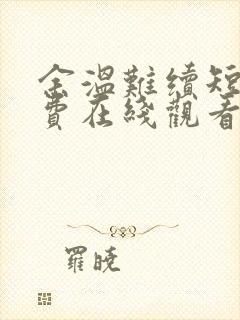 余溫難續短
費在綫觀看
羅曉